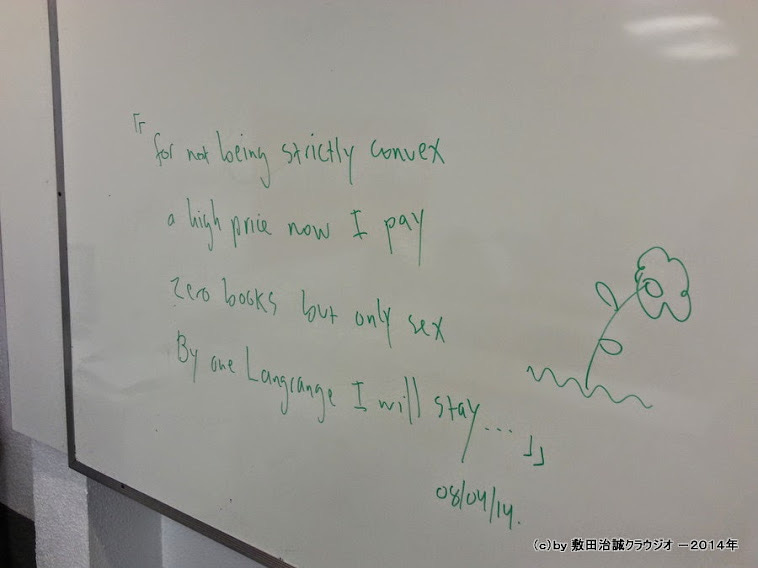 『for not being strictly convex
a high price now I pay
zero books but only sex
By one Langrange I will stay...』
08/04/14.
(c)by 敷田治誠クラウジオ －2014年